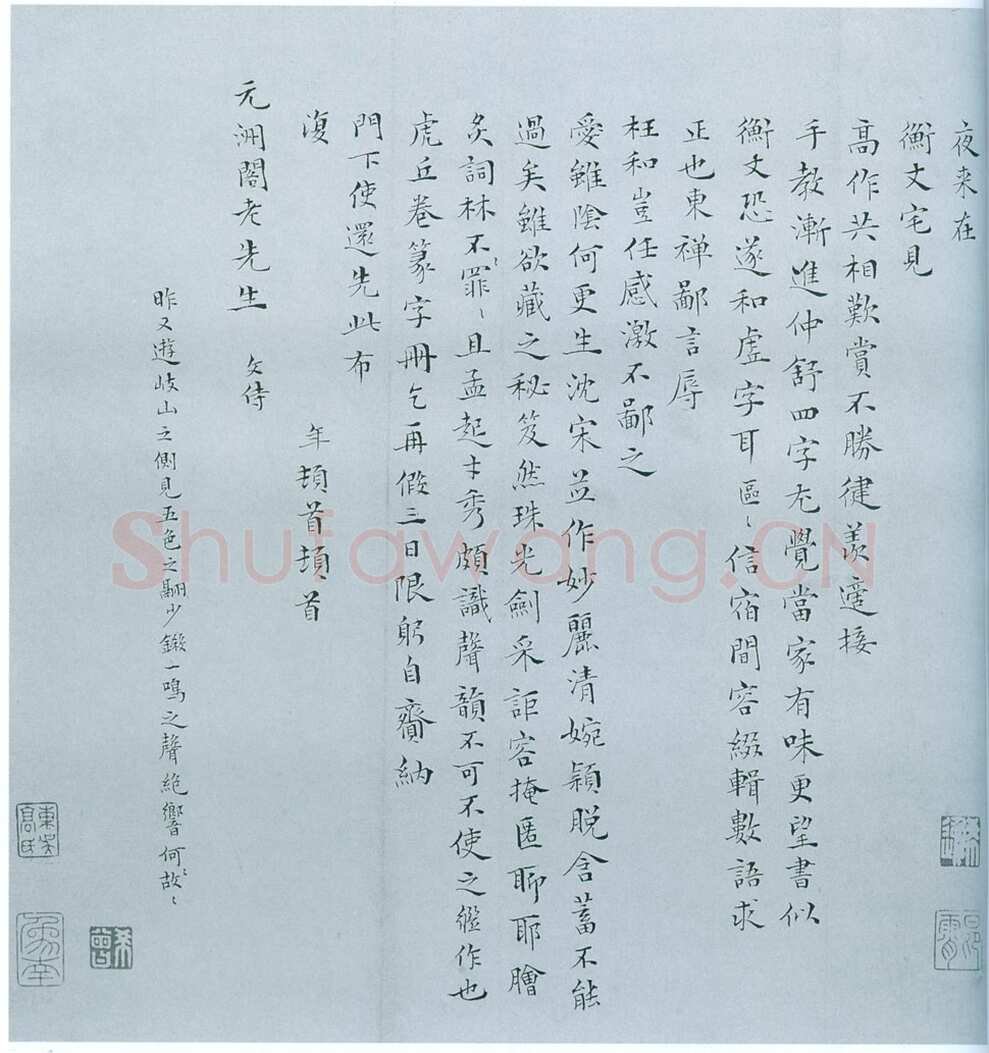 夜来在
衡丈宅見
高作共相歎賞不勝健羨適接
手教漸進仲舒四字尤覺當家有味更望書似
衡丈恐遂和虛字耳區〻信宿間容綴輯數語求
正也東禅鄙言辱
枉和豈任感激不鄙之
愛雖陰何更生沈宋並作妙麗清婉穎脱含蓄不能
過矣雖欲藏之秘笈然珠光劍采詎容掩匿聊耶膾
炙詞林不罪〻且孟起才秀頗識聲韻不可不使之繼作也
虎丘卷篆字冊乞再假三日限躬自齎納
門下使還先此布
復
年頓首頓首
元洲閣老先生 文侍
昨又遊岐山之側見五色之翮少鎩一鳴之聲絶響何故〻
Shufawang.CN